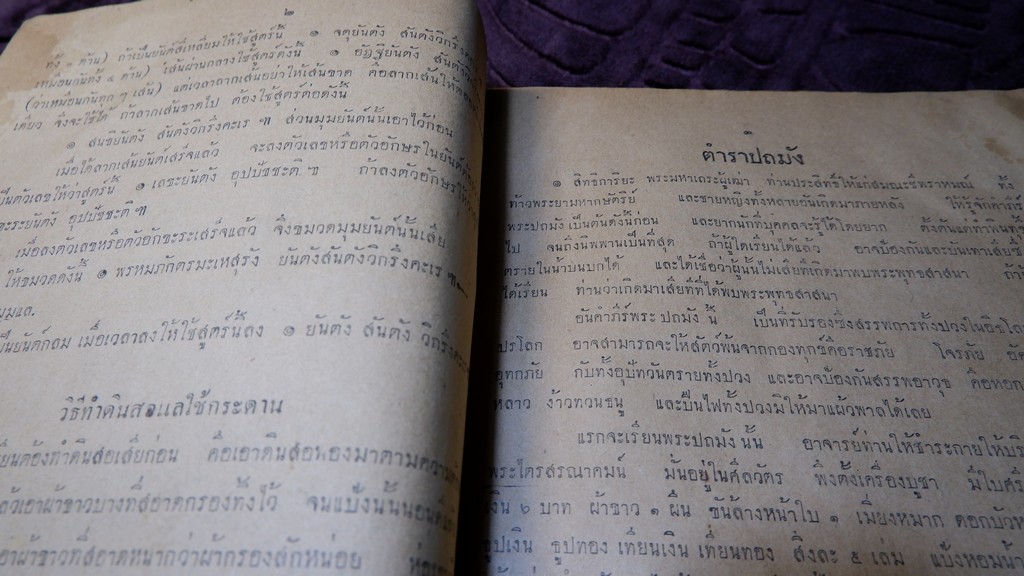 ๒
ตัง ๑ ด้าน) ถ้าเป็นยันต์สี่เหลี่ยมให้ใช้สูตร์นี้ ๑ จตุยันตัง สันตังวิกรึง
เหมือนกันทั้ง ๔ ด้าน) เส้นผ่านกลางใช้สูตรดังนี้ ๑ อัฏฐยันตัง สันตัง
(ว่าเหมือนกันทุก ๆ เส้น) แต่เวลาลากเส้นอย่าให้เส้นขาด คือลากเส้นให้
เดียว จึงจะใช้ได้ ถ้าลากเส้นขาดไป ต้องใช้สูตร์ต่อดังนี้
๑ สนธิยันตัง สันตังวิกรึงคะเร ฯ ส่วนมุมยันต์นั้นเอาไว้ก่อน
เมื่อได้ลากเส้นยันต์เสร็จแล้ว จะลงตัวเลขหรือตัวอักษรในยันต์
เป็นตัวเลขให้ว่าสูตร์นี้ ๑ เลขะยันตัง อุปปัชชะติ ฯ ถ้าลงตัวอักษรให้
ขะระยันตัง อุปปัชชะติ ฯ
เมื่อลงตัวเลขหรือตัวอักขะระเสร็จแล้ว จึงขมวดมุมยันต์นั้นเสีย
ให้ขมวดดังนี้ ๑ พรหมภักตรมะเหสุรัง ยันตังสันตังวิกรึงคะเร ฯ
มุมแล.
เป็นยันต์กลม เมื่อเวลาลงให้ใช้สูตร์นี้ลง ๑ ยันตัง สันตัง วิกรึง
วิธีทำดินสอแลใช้กระดาน
ต้องทำดินสอเสียก่อน คือเอาดินสอพองมาตามความ
แล้วเอาผ้าขาวบางที่สอาดกรองทั้งไว้ จนแป้งนั้นนอน
เอาผ้าขาวที่สอาดหนากว่าผ้ากรองสักหน่อย
๑
ตำราปถมัง
๑ สิทธิการิยะ พระมหาเถระผู้เฒ่า ท่านประสิทธิ์ให้แก่สมณะชีพราหมณ์ ทั้ง
ท้าวพระยามหากษัตริย์ และชายหญิงทั้งหลายอันเกิดมาภายหลัง ให้รู้จักคำภีร์
พระปถมัง เป็นต้นดังนี้ก่อน และยากนักที่บุคคลจะรู้ได้โดยยาก ตั้งต้นแต่ทำพื้นชั้น
ไป จนถึงนิพพานเป็นที่สุด ถ้าผู้ใดเรียนได้แล้ว อาจป้องกันและบันเทาเสียซึ่
ตรายในน้ำบนบกได้ และได้ชื่อว่าผู้นั้นไม่เสียที่เกิดมาพบพระพุทธสาสนา ถ้า
ได้เรียน ท่านว่าเกิดมาเสียที่ที่ได้พบพระพุทธสาสนา
อันคำภีร์พระปถมัง นี้ เป็นที่รับรองซึ่งสรรพการทั้งปวงในอิธโล
ปรโลก อาจสามารถจะให้สัตว์พ้นจากกองทุกข์คือราชภัย โจรภัย อัค
อุทกภัย กับทั้งอุปัทวันตรายทั้งปวง และอาจป้องกันสรรพอาวุธ คือหอก
หลาว ง้าวทวนธนู และปืนไฟทั้งปวงมิให้มาแผ้วพาลได้เลย
แรกจะเรียนพระปถมังนั้น อาจาริย์ท่านให้ชำระกายให้บริ
พระไตรสรณาคมน์ มั่นอยู่ในศีลวัตร พึงตั้งเครื่องบูชา มีใบศรี
เงิน ๖ บาท ผ้าขาว ๑ ผืน ขันล้างหน้าใบ ๑ เมี่ยงหมาก ดอกบัว
ธูปเงิน ธูปทอง เทียนเงิน เทียนทอง สิ่งละ ๕ เล่ม แป้งหอมน้ำ